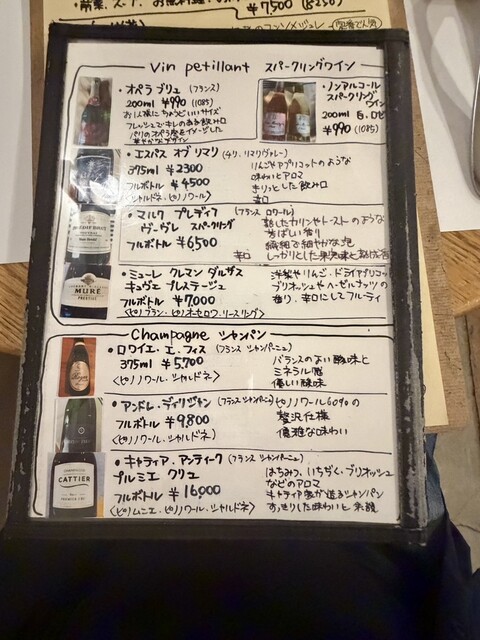 ¥7500 (8250)
Vin petillant スパークリングワイン
・オペラ ブリュ (フランス)
200ml ¥990 (1085)
お1人様にちょうどいいサイズ
フレッシュでキレのある飲み口
パリのオペラ座をイメージした
華やかなデザイン
・ノンアルコール
スパークリング
ワイン
200ml 白、ロゼ
¥990 (1085)
・エスパス オブ リマリ (チリ、リマリヴァレー)
375ml ¥2300
フルボトル ¥4500
<シャルドネ・ピノノワール>
りんごやアプリコットのような
味わいとアロマ
きりっとした飲み口
辛口
・マルク ブレディフ (フランス ロワール)
ヴーヴレ スパークリング
フルボトル ¥6,500
辛口
熟したカリンやトーストのような
香ばしい香り
繊細で細やかな泡
しっかりとした果実味と
・ミューレ クレマン ダルザス
キュヴェ プレステージュ
フルボトル ¥7,000
<ピノブラン・ピノオーセロワ・リースリング>
洋梨やりんご・ドライアプリコット
ブリオッシュやヘーゼルナッツの
香り、辛口にしてフルーティ
Champagne シャンパン
・ロワイエ・エ・フィス (フランス シャンパーニュ)
375ml ¥5,700
<ピノノワール、シャルドネ>
バランスのない酸味と
ミネラル感
優しい酸味
・アンドレ・ディリジャン (フランス シャンパーニュ)
フルボトル ¥9,800
<ピノノワール・シャルドネ>
ピノノワール60%の
贅沢仕様
優雅な味わい
・キャティア・アンティーク (フランス シャンパーニュ)
プルミエ クリュ
フルボトル ¥16,000
<ピノムニエ・ピノノワール・シャルドネ>
はちみつ、いちぢく、ブリオッシュ
などのアロマ
キャティア家が造るシャンパン
すっきりした味わいと
MURÉ
PRESTIGE
CATTIER